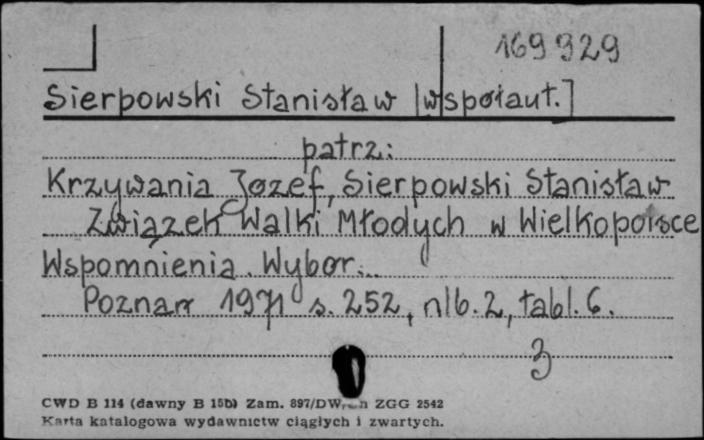 169929
Sierpowski Stanisław [współaut.]
patrz:
Krzywania Józef, Sierpowski Stanisław
Związek Walki Młodych w Wielkopolsce
Wspomnienia. Wybór...
Poznań 1971 s. 252, nlb. 2, tabl. 6.
3
CWD B 114 (dawny B 15b) Zam. 897/DW ZGG 2542
Karta katalogowa wydawnictw ciągłych i zwartych.